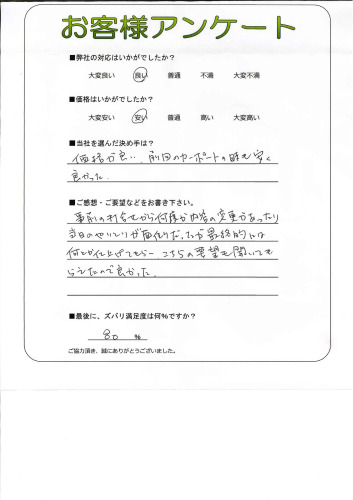 お客様アンケート
■弊社の対応はいかがでしたか？
大変良い 良い 普通 不満 大変不満
■価格はいかがでしたか？
大変安い 安い 普通 高い 大変高い
■当社を選んだ決め手は？
価格が良い、前回のカーポートの時も安く
良かった
■ご感想・ご要望などをお書き下さい。
事前の打合せから何度か内容の変更があったり
当日のやりとりが面倒だったが最終的には
何とか仕上げてもらい こちらの要望も聞いても
らえたので良かった
■最後に、ズバリ満足度は何％ですか？
80 %
ご協力頂き、誠にありがとうございました。